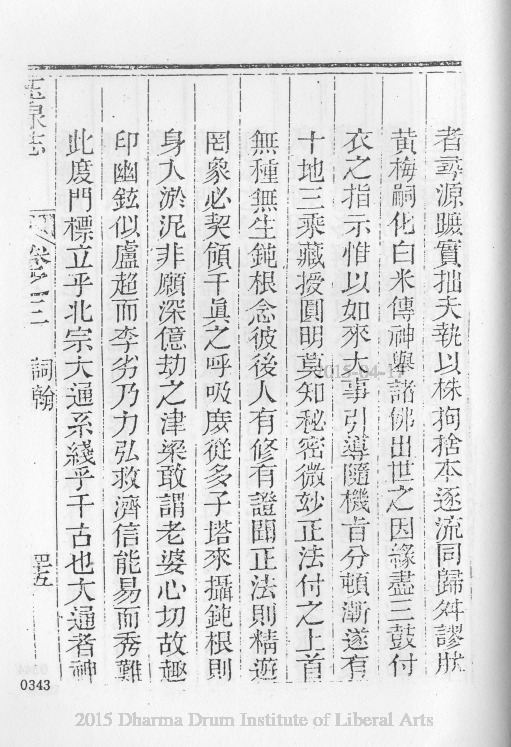 者尋源躡實拙夫執以株拘捨本逐流同歸舛謬肰
黃梅嗣化白米傳神舉諸佛出世之因緣盡三鼓付
衣之指示惟以如來大事引導隨機旨分頓漸遂有
十地三乘藏授圓明莫知秘密微妙正法付之上首
無種無生鈍根念彼後人有修有證聞正法則精遊
罔象必契傾千眞之呼吸慶從多子塔來攝鈍根則
身入淤泥非願深億劫之津梁敢謂老婆心切故趣
印幽鉉似盧超而李劣乃力弘救濟信能易而秀難
此度門標立乎北宗大通系綫乎千古也大通者神
玉泉志 卷之三 詞翰 罕五
0343
2015-04-14
2015 Dharma Drum Institute of Liberal Arts